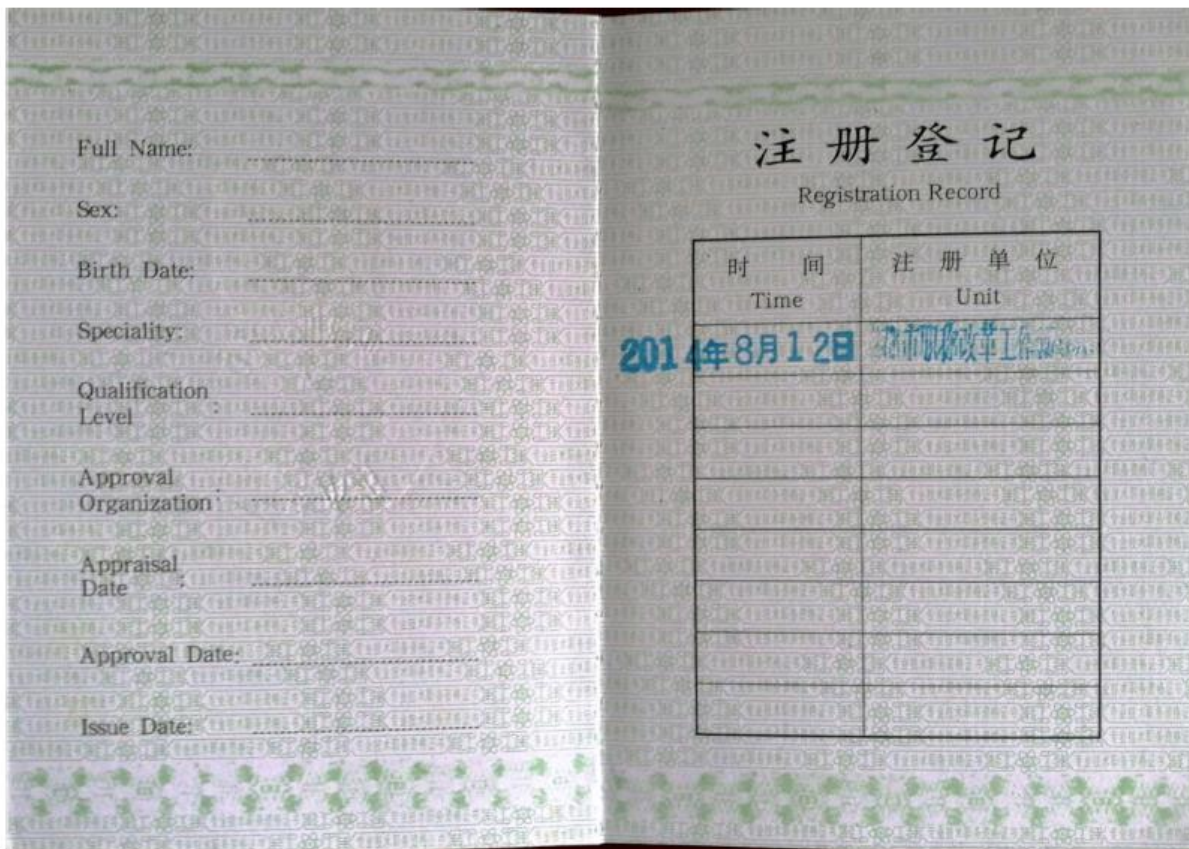 Full Name:
Sex:
Birth Date:
Speciality:
Qualification
Level :
Approval
Organization :
Appraisal
Date :
Approval Date:
Issue Date:
注册登记
Registration Record
时 间 注 册 单 位
Time Unit
2014年8月12日 市职称改革工作